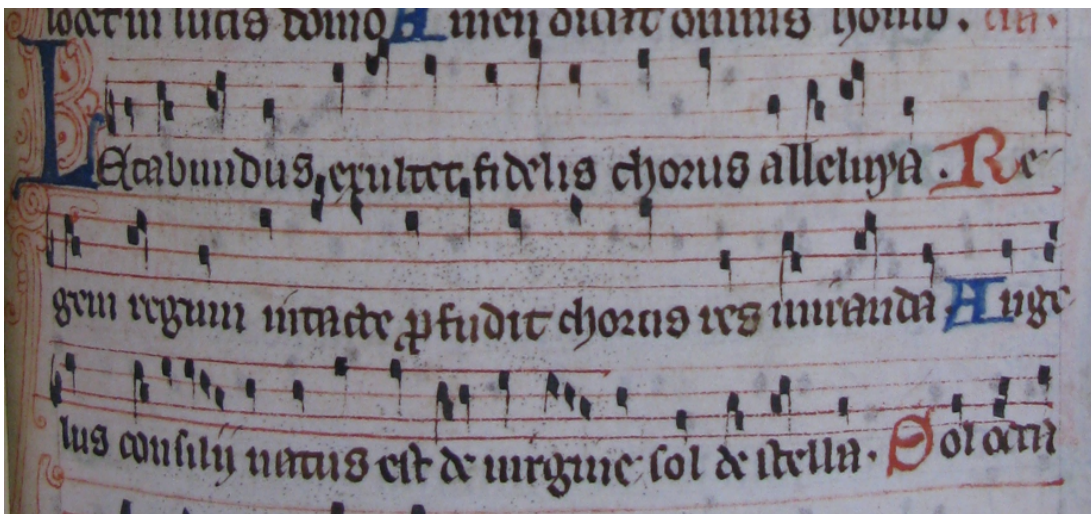 locet in lucis domo Amen dicat omnis homo. 
LEtabundus exultet fidelis chorus alleluya. Re
gem regum intacte ꝓfudit chorus res miranda Ange
lus consilij natus est de uirgine sol de stella. Sol occa